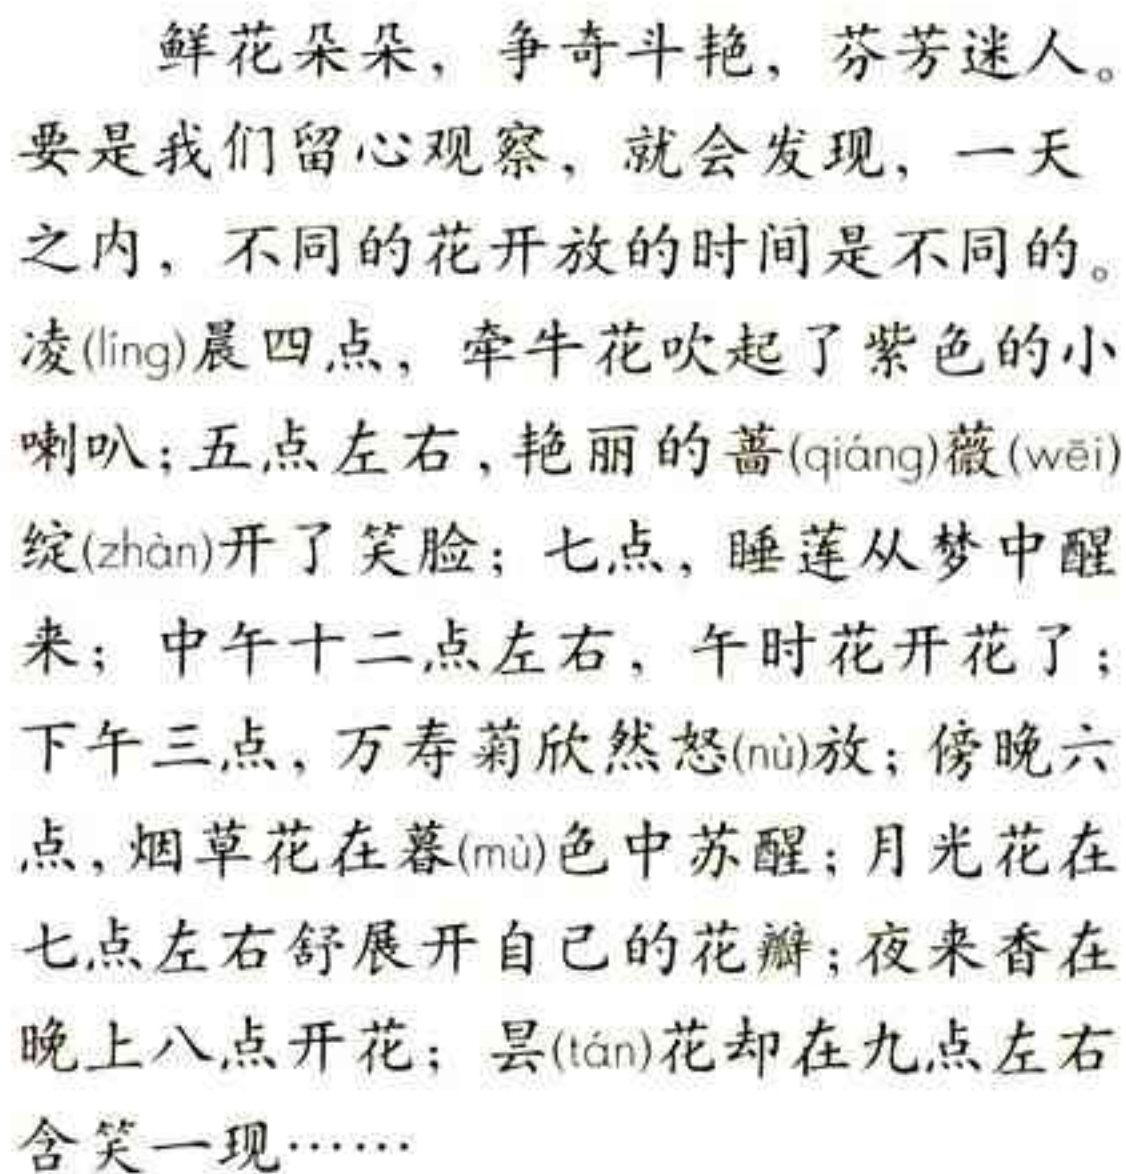 鲜花朵朵，争奇斗艳，芬芳迷人。
要是我们留心观察，就会发现，一天
之内，不同的花开放的时间是不同的。
凌(líng)晨四点，牵牛花吹起了紫色的小
喇叭；五点左右，艳丽的蔷(qiáng)薇(wēi)
绽(zhàn)开了笑脸；七点，睡莲从梦中醒
来；中午十二点左右，午时花开花了；
下午三点，万寿菊欣然怒(nù)放；傍晚六
点，烟草花在暮(mù)色中苏醒；月光花在
七点左右舒展开自己的花瓣；夜来香在
晚上八点开花；昙(tán)花却在九点左右
含笑一现……